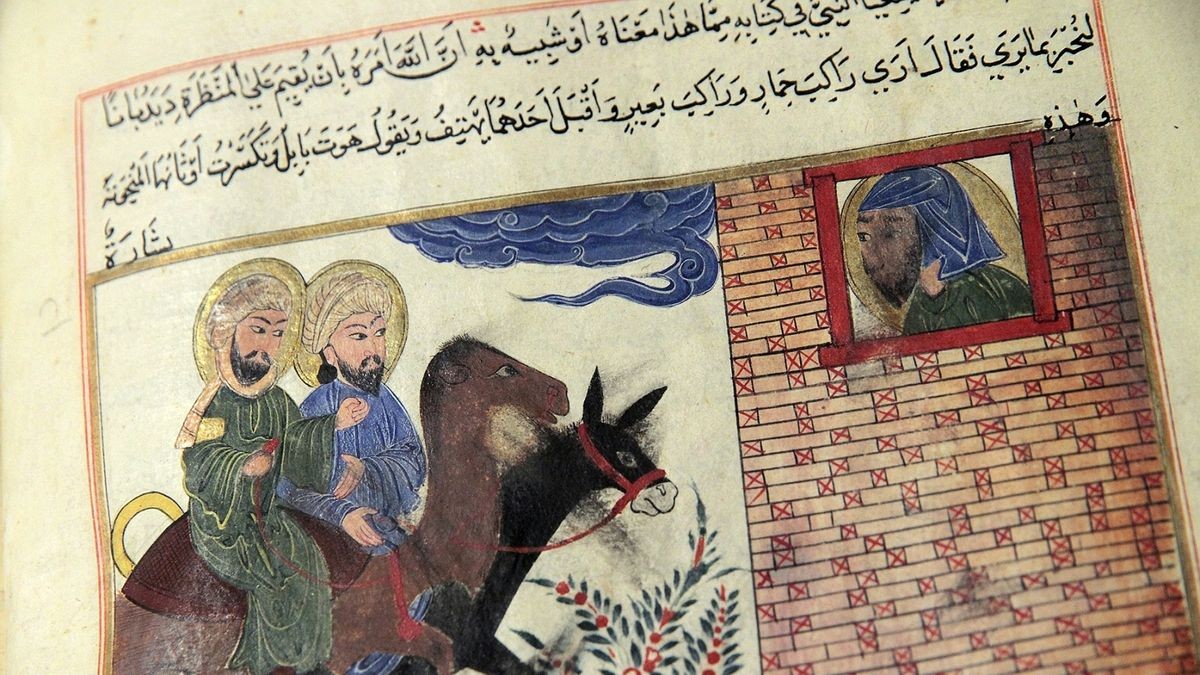 النبي في كتابه مما هذا معناه او شبيه به ان الله امره بان يقيم علي المنظرة ديدبانا
ليخبر بما يري فقال اري راكب حمار وراكب بعير واقبل احدهما يهتف ويقول هوت بابل وتكسرت اوثانها المنجونة
وهذه
بشارة